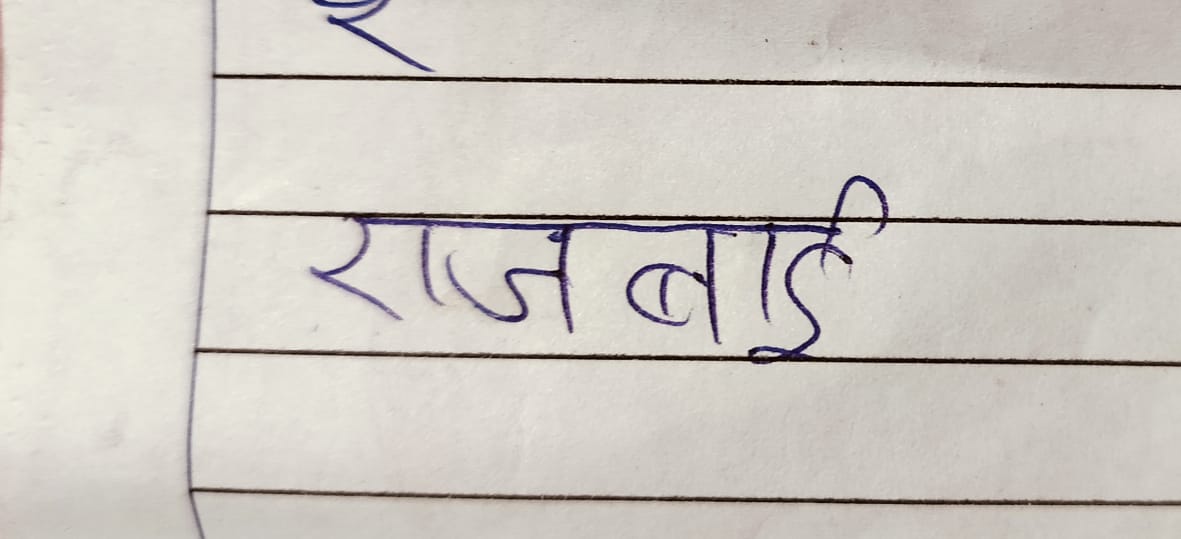 राजबाई